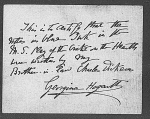 This is to certify that the
notes in blue Ink in the
M.S. Play of the Cricket on the Hearth
are written by my
Brother in Law Charles Dickens
Georgina Hogarth